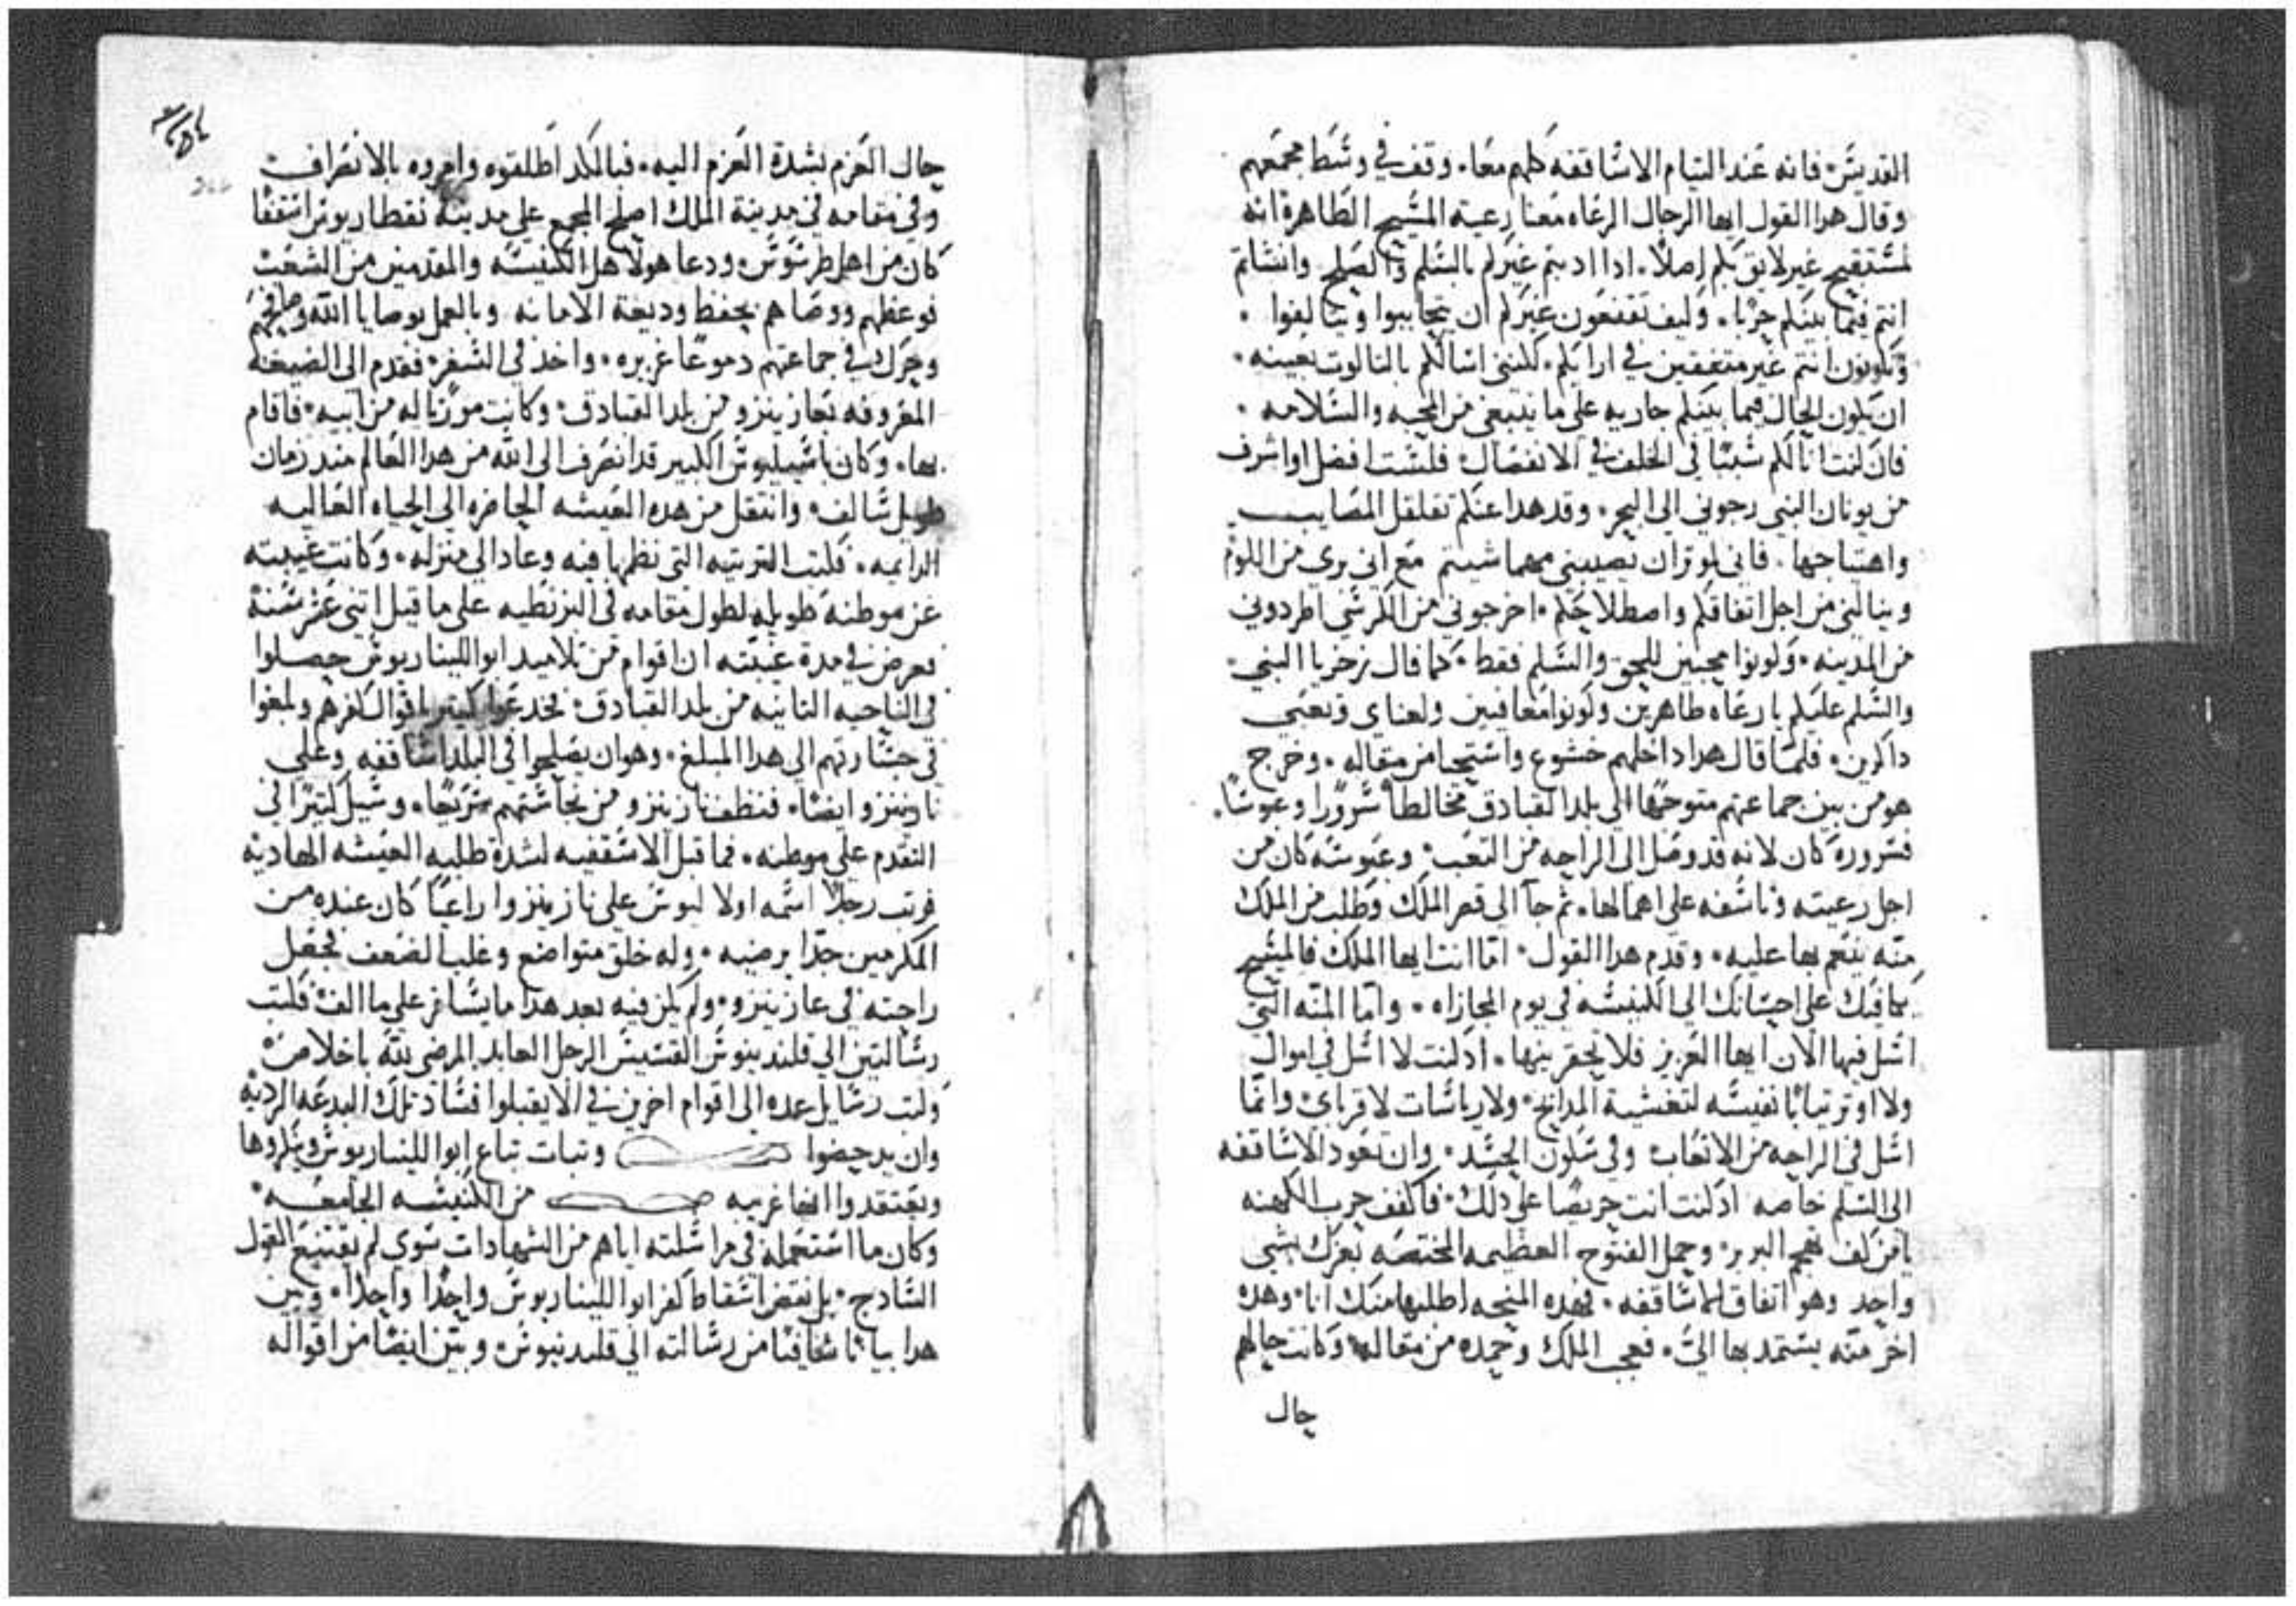 القديس فانه عند التيام الاساقفه كلهم معًا. وقف في وسط مجمعهم
وقال هدا القول ايها الرجال الرعاه معنا رعية المسيح الطاهرة انه
لمستقبح غير لايق بكم اصلاً. ادا ادبتم غيركم بالسلم والصلح وانشاتم
انتم فيما بينكم حربًا. وكيف تقنعون غيركم ان يتحاببوا ويتالفوا.
وتكونون انتم غير متفقين في ارايكم. لكنني اسالكم بالتالوت بعينه.
ان يكون الحال فيما بينكم جاريه على ما ينبغي من المحبه والسلامه.
فان كنت انا لكم سببًا في الخلف في الانفصال فلست افضل او اشرف
من يونان النبي زجوني الى البحر. وقد هدا عنكم تقلقل المصايب
واهتياجها. فاني اوتر ان يصيبني مهما شيتم مع اني بري من اللوم
وينالني من اجل اتفاقكم واصطلاحكم. اخرجوني من الكرسي اطردوني
من المدينه. وكونوا محبين للحق والسلم فقط. كما قال زخريا النبي.
والسلم عليكم يا رعاه طاهرين وكونوا معافيين ولعناي وتعبي
داكرين. فلما قال هدا داخلهم خشوع واستحيا من مقاله. وخرج
هو من بين جماعتهم متوجهًا الى بلد القبادق مخالطًا سرورًا وعبوسًا.
فسروره كان لانه قد وصل الى الراحه من التعب. وعبوسه كان من
اجل رعيته وتاسفه على اهمالها. تم جا الى قصر الملك وطلب من الملك
منّه ينعم بها عليه. وقدم هدا القول. امّا انت ايها الملك فالمسيح
يكافيك على احسانك الى الكنيسه في يوم المجازاه. وامّا المنّه التي
اسل فيها الان ايها العزيز فلا تحقرنيها. اد لست لا اسل في اموال
ولا اوتر تيابًا نفيسه لتغشية المدابح ولا رياسات لاقرباي. وانّما
اسل في الراحه من الاتعاب وفي سكون الجسد. وان تعود الاساقفه
الى السلم خاصه اد كنت انت حريصًا على دلك. فاكفف حرب الكهنه
يا من كف تهجم البربر. وجمل الفتوح العظيمه المختصه بعزك بشي
واحد وهو اتفاق الاساقفه. فهده المنحه اطلبها منك انا. وهده
اخر منّه يستمد بها اليّ. فعجب الملك وحمده من مقاله. وكانت حالهم
حال
حال العزم بشدة العزم اليه. فبالكد اطلقوه وامروه بالانصراف
وفي مقامه في مدينة الملك اصلح المجمع على مدينة نقطاريوس اسقفًا
كان من اهل طرسوس. ودعا هولا هل الكنيسه والمقدمين من الشعب
فوعظهم ووصاهم بحفظ وديعة الامانه وبالعمل بوصايا الله وصافحهم
وحرك في جماعتهم دموعًا غزيره. واخد في السفر. فقدم الى الضيعه
المعروفه بعازينزو من بلد القبادق. وكانت مورتًا له من ابيه. فاقام
بها. وكان باسيليوس الكبير قد انصرف الى الله من هدا العالم مند زمان
طويل سالف. وانتقل من هده العيشه الحاضره الى الحياه العاليه
الدايمه. فكتب المرتيه التي نظمها فيه وعاد الى منزله. وكانت غيبته
عن موطنه طويله لطول مقامه في البزنطيه على ما قيل اتني عشر سنة
فعرض في مدة غيبته ان اقوام من تلاميد ابوالليناريوس حصلوا
في الناحيه التانيه من بلد القبادق. فخدعوا كتير باقوال كفرهم وبلغوا
في جسارتهم الى هدا المبلغ. وهو ان يصلحوا في البلد اساقفه وعلى
نازينزو ايضًا. فنظف نازينزو من نجاستهم سريعًا. وسيل كتيرًا في
التقدم على موطنه. فما قبل الاسقفيه لشدة طلبه العيشه الهاديه
فرتب رجلاً اسمه اولاليوس على نازينزو راعيًا كان عنده من
المكرمين جدًا برضيه. وله خلق متواضع وغلب الضعف فجعل
راحته في عازينزو. ولم يكن فيه بعد هدا ما يسافر على ما الف. فكتب
رسالتين الى قلندينوس القسيس الرجل العابد المرضي لله باخلاص
وكتب رسايل عده الى اقوام اخرين في الا يقبلوا فساد تلك البدعه الرديه
وان يدحضوا وتبات تباع ابوالليناريوس وينكروها
ويعتقدوا انها غريبه من الكنيسه الجامعه.
وكان ما استعمله في مراسلته اياهم من الشهادات سوى لم يقتنع القول
السادج. بل نقض اسقاط كفر ابوالليناريوس واحدًا واحدًا. وبين
هدا بيانًا شافيًا من رسالته الى قلندينوس. وبيّن ايضًا من اقواله